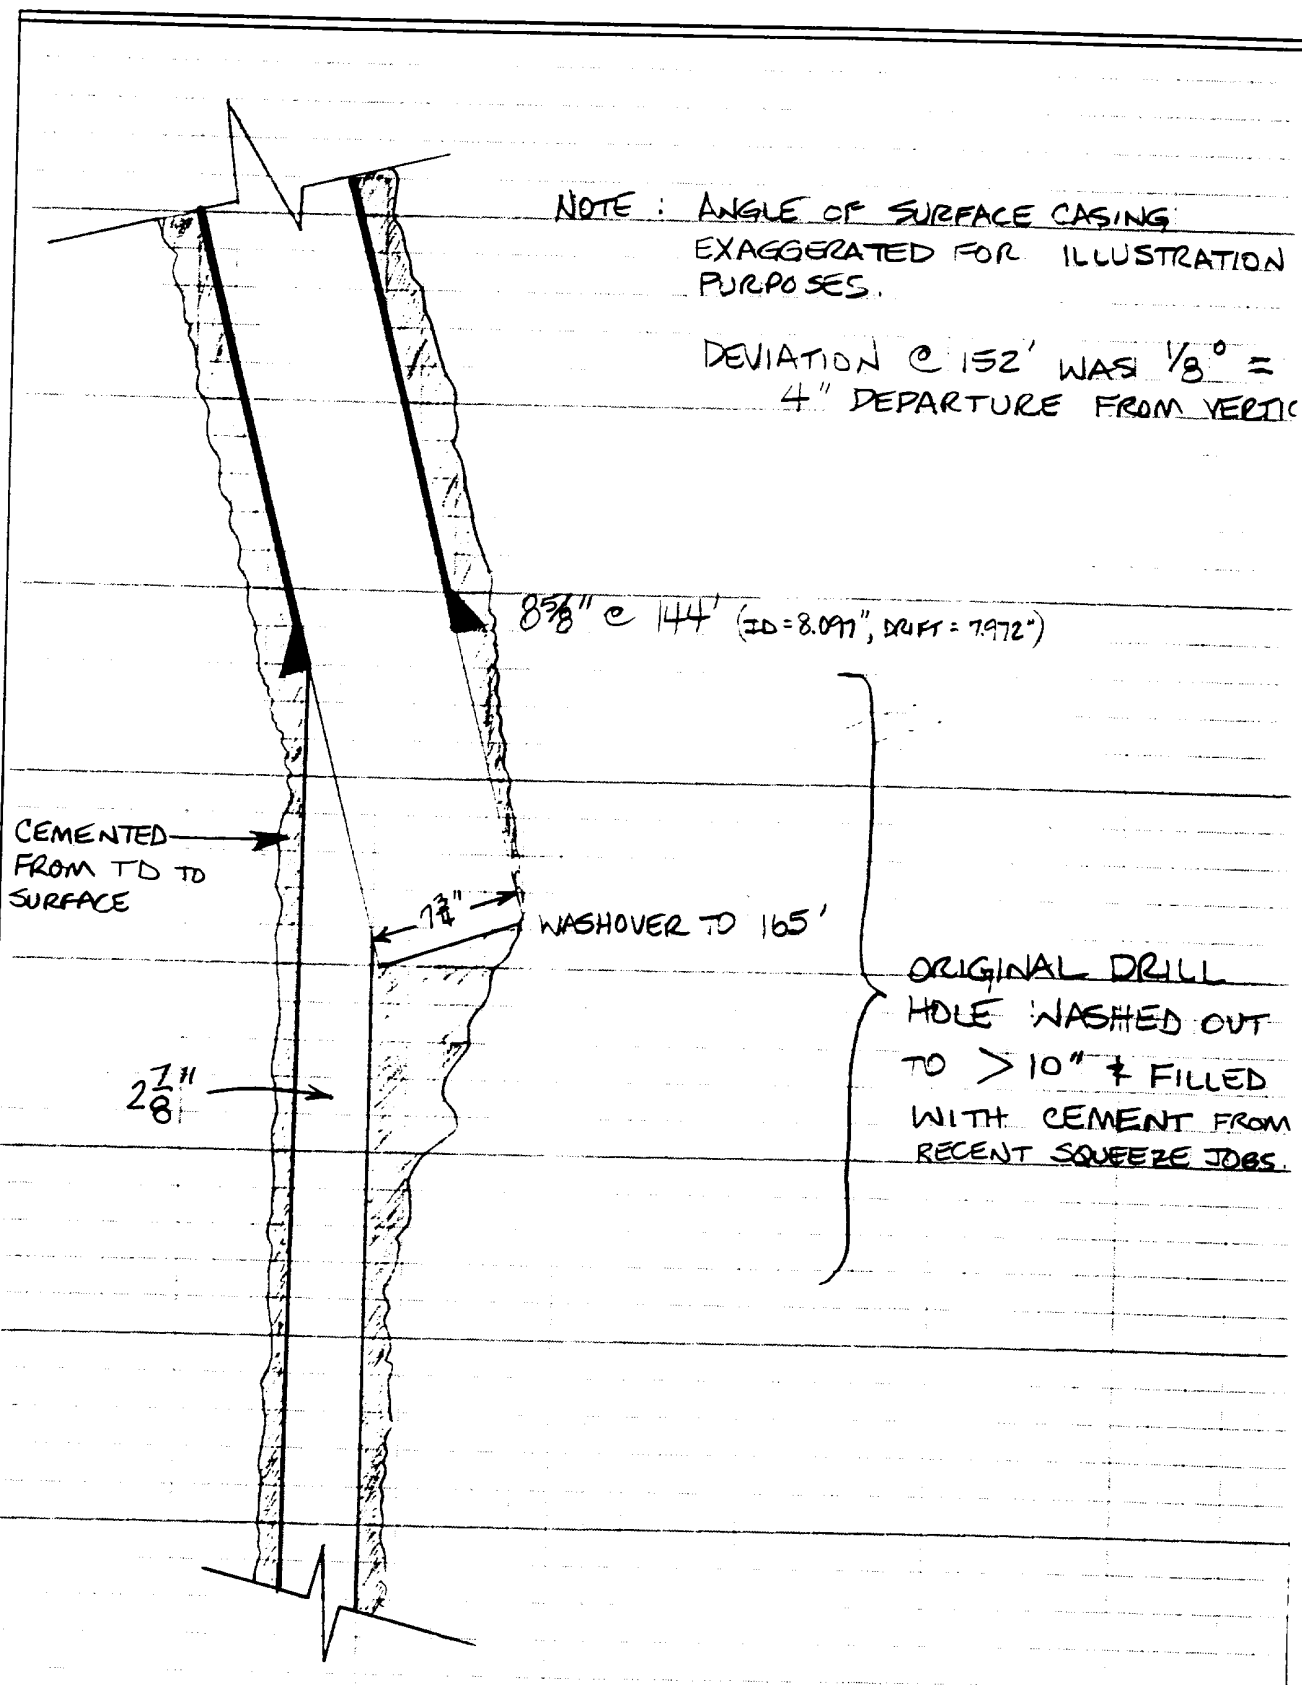 NOTE : ANGLE OF SURFACE CASING
EXAGGERATED FOR ILLUSTRATION
PURPOSES.
DEVIATION @ 152' WAS 1/8° =
4" DEPARTURE FROM VERTIC
8 5/8" @ 144' (ID = 8.097", DRIFT = 7.972")
CEMENTED
FROM TD TO
SURFACE
7 3/4"
WASHOVER TO 165'
ORIGINAL DRILL
HOLE WASHED OUT
TO > 10" & FILLED
WITH CEMENT FROM
RECENT SQUEEZE JOBS.
2 7/8"